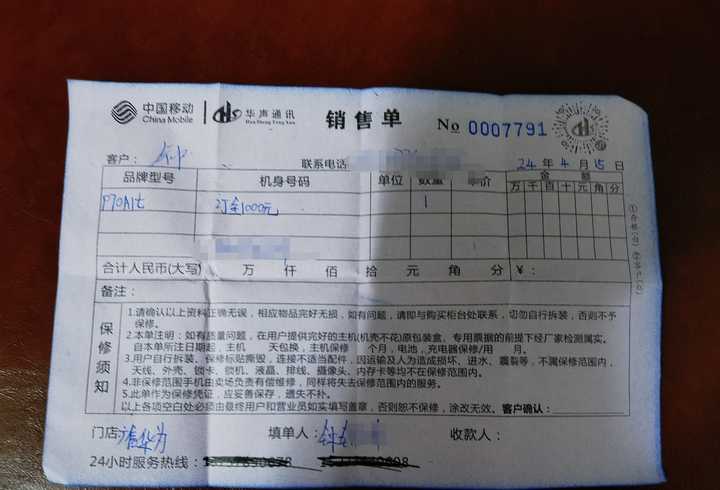 中国移动 China Mobile 华声通讯 Hua Sheng Tong Xun 销售单 No 0007791
客户： 联系电话 24 年 4 月 15 日
品牌型号 机身号码 单位 数量 单价 金额
万 千 百 十 元 角 分
P70A1t 订金1000元 1
合计人民币(大写) 万 仟 佰 拾 元 角 分 ¥：
备注：
保修须知
1.请确认以上资料正确无误，相应物品完好无损，如有问题，请即与购买柜台处联系，切勿自行拆装，否则不予
保修。
2.本单注明：如有质量问题，在用户提供完好的主机(机壳不花)原包装盒、专用票据的前提下经厂家检测属实。
自本单所注日期起，主机 天包换，主机保修 个月，电池，充电器保修/用 月。
3.用户自行拆装、保修标贴撕毁，连接不适当配件，因运输及人为造成损坏、进水、震裂等，不属保修范围内，
天线、外壳、锁卡、锁机、液晶、排线、摄像头、内存卡等均不在保修范围内。
4.非保修范围手机由卖场负责有偿维修，同样将失去保修范围内的服务。
5.此单作为保修凭证，应妥善保存，遗失不补。
以上各项空白处必须由最终用户和营业员如实填写盖章，否则恕不保修，涂改无效。 客户确认：
门店： 华为 填单人： 钟 收款人：
24小时服务热线：